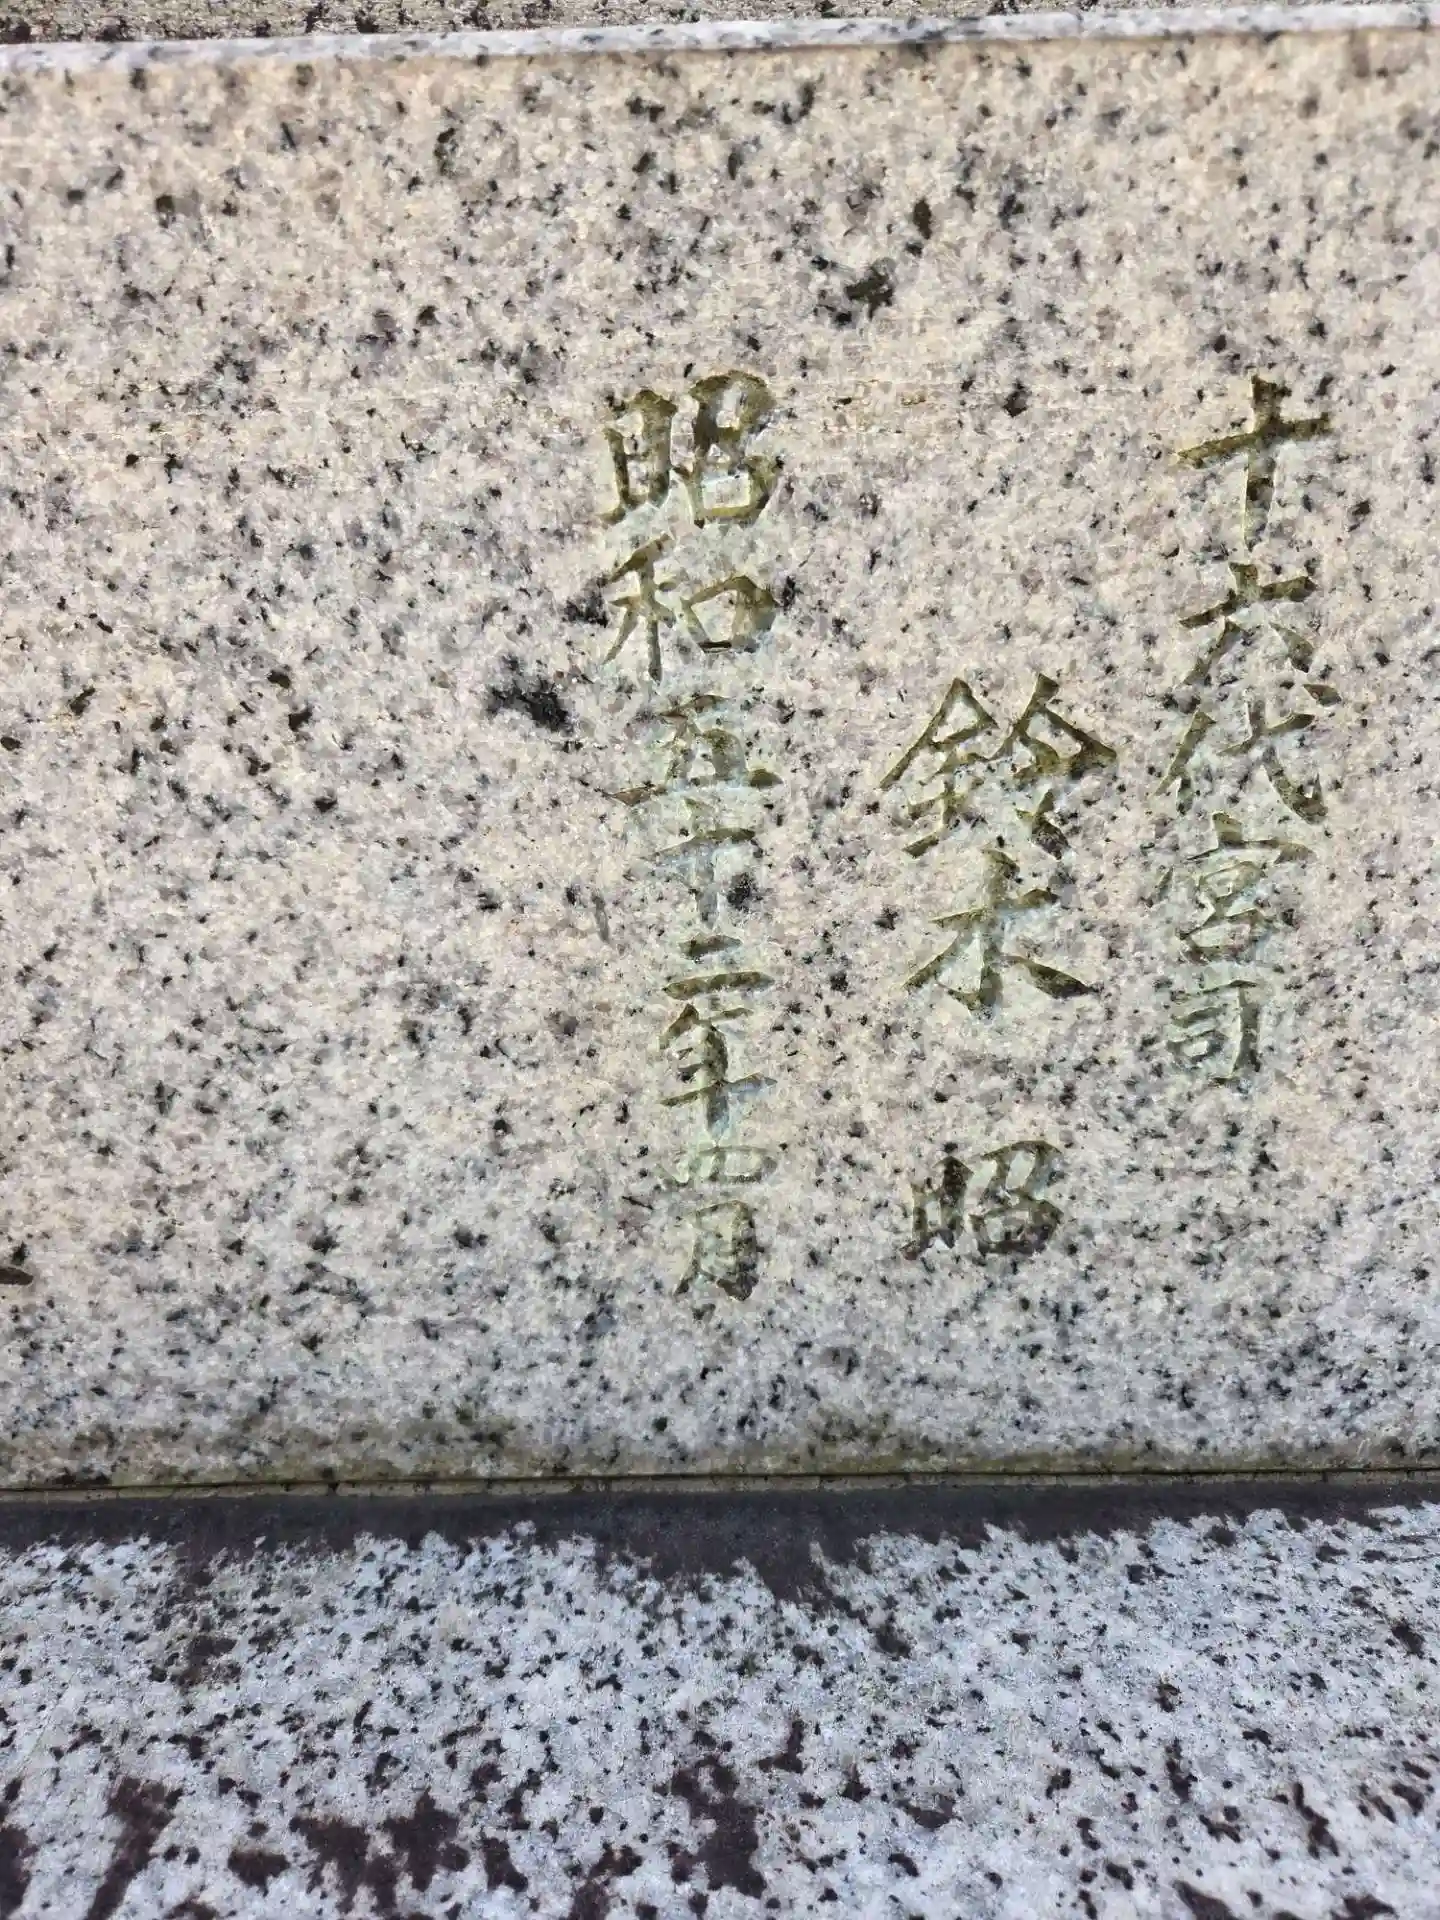 十六代宮司
鈴木 昭
昭和五十二年四月